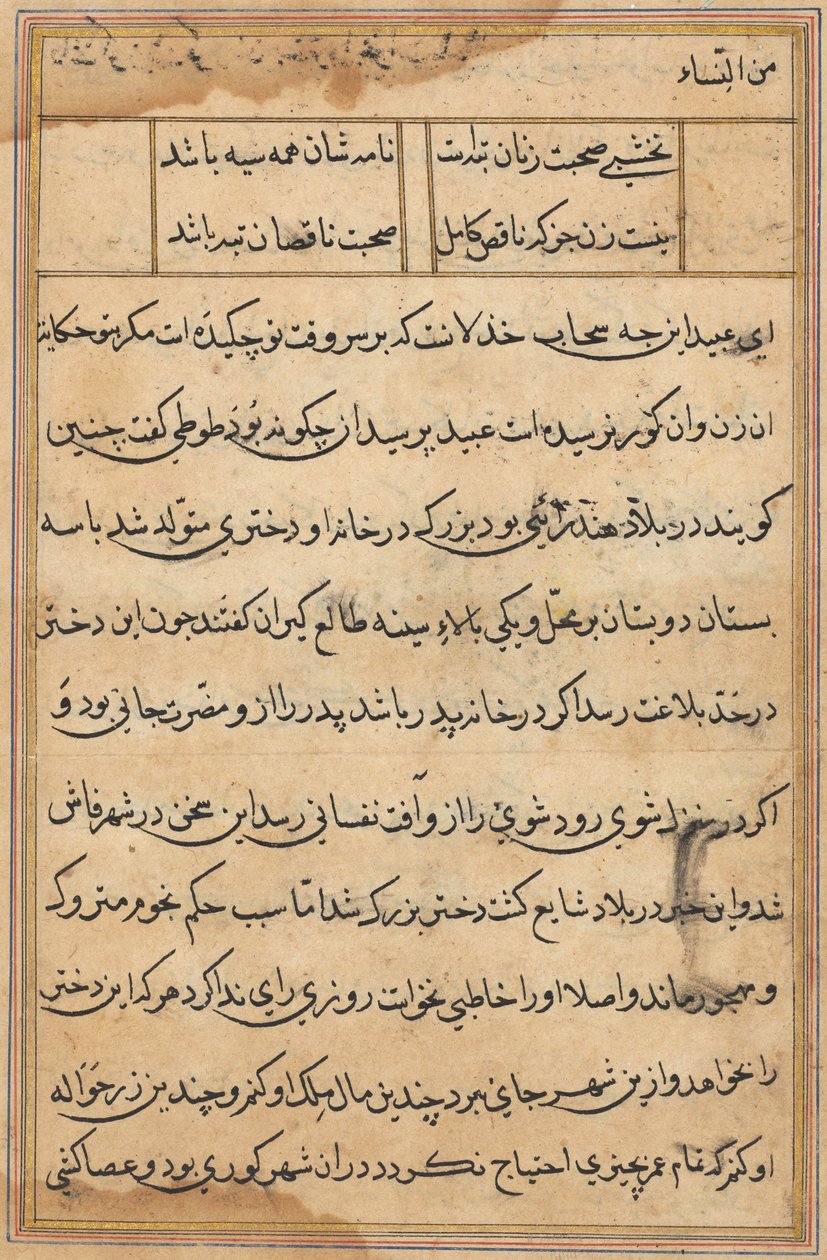 من النّساء
نخشبی صحبت زنان تبه است نامه شان همه سیه باشد
نیست زن جز که ناقص کامل صحبت ناقصان تبه باشد
ای عبید این چه سحاب خذلانست که بر سر وقت تو چکیدَه است مکر بتو حکایت
ان زن وان کور نرسیده است عبید پرسید ان چکونه بُودَ طوطی کفت چنین
کویند در بلاد هند رائی بود بزرک در خانه او دختری متوّلد شد با سه
بستان دو بستان بر محلّ و یکی بالاءِ سینه طالع کیران کفتند جون این دختر
در حَدّ بلاغت رسد اکر در خانه پدر باشد پدر را از و مضّرت جانی بود وَ
اکر در منزل شوی رود شوی را از و آفت نفسانی رسد این سخن در شهر فاش
شد و این خبر در بلاد شایع کشت دختر بزرک شد امّا سبب حکم نجوم متروک
و مهجور ماند و اصلا او را خاطبی نخواست روزی رای ندا کرد هر که این دختر
را بخواهد و ازین شهر جای نبرد چندین مال مِلک او کنم و چندین زر حَوَاله
او کنم که تمام عمر بچیزی احتیاج نکردد در ان شهر کوری بود و عصا کشی